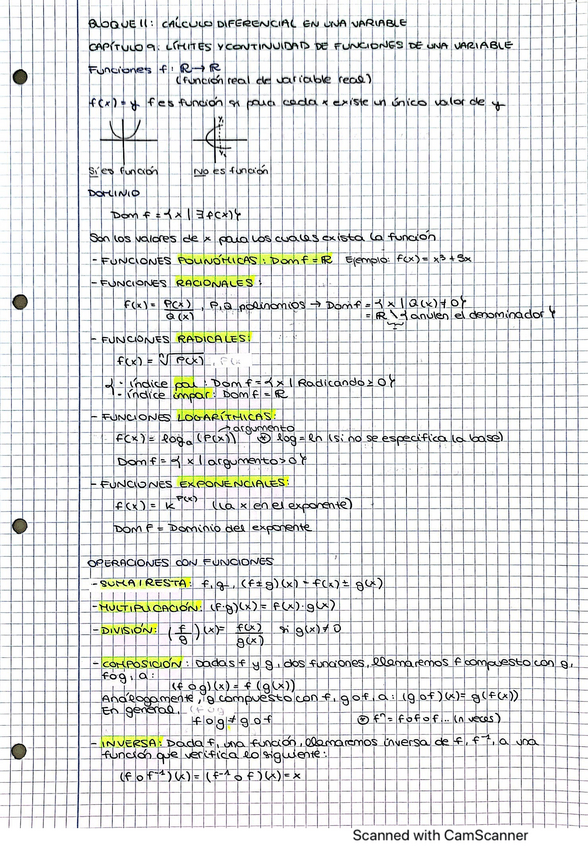 BLOQUE II: CÁLCULO DIFERENCIAL EN UNA VARIABLE
CAPÍTULO 9: LÍMITES Y CONTINUIDAD DE FUNCIONES DE UNA VARIABLE
Funciones f: ℝ→ℝ
(función real de variable real)
f(x)=y f es función si para cada x existe un único valor de y
y₁
y₂
Sí es función No es función
DOMINIO
Dom f = {x | ∃ f(x)}
Son los valores de x para los cuales exista la función
- FUNCIONES POLINÓMICAS: Dom f = ℝ Ejemplo: f(x) = x³ + 5x
- FUNCIONES RACIONALES:
f(x) = P(x)/Q(x), P, Q polinomios → Dom f = {x | Q(x) ≠ 0}
= ℝ \ {anulen el denominador}
- FUNCIONES RADICALES:
f(x) = ⁿ√P(x)
{ - índice par: Dom f = {x | Radicando ≥ 0}
- índice impar: Dom f = ℝ
- FUNCIONES LOGARÍTMICAS:
→ argumento
f(x) = logₐ (P(x)) ⊛ log = ln (si no se especifica la base)
Dom f = {x | argumento > 0}
- FUNCIONES EXPONENCIALES:
f(x) = K^P(x) (la x en el exponente)
Dom f = Dominio del exponente
OPERACIONES CON FUNCIONES
- SUMA / RESTA: f, g, (f±g)(x) = f(x) ± g(x)
- MULTIPLICACIÓN: (f·g)(x) = f(x)·g(x)
- DIVISIÓN: (f/g)(x) = f(x)/g(x) si g(x) ≠ 0
- COMPOSICIÓN: Dadas f y g, dos funciones, llamaremos f compuesto con g,
fog, a:
(f o g)(x) = f (g(x))
Análogamente, g compuesto con f, g o f, a: (g o f)(x) = g(f(x))
En general,
f o g ≠ g o f ⊛ fⁿ = f o f o f... (n veces)
- INVERSA: Dada f, una función, llamaremos inversa de f, f⁻¹, a una
función que verifica lo siguiente:
(f o f⁻¹)(x) = (f⁻¹ o f)(x) = x
Scanned with CamScanner